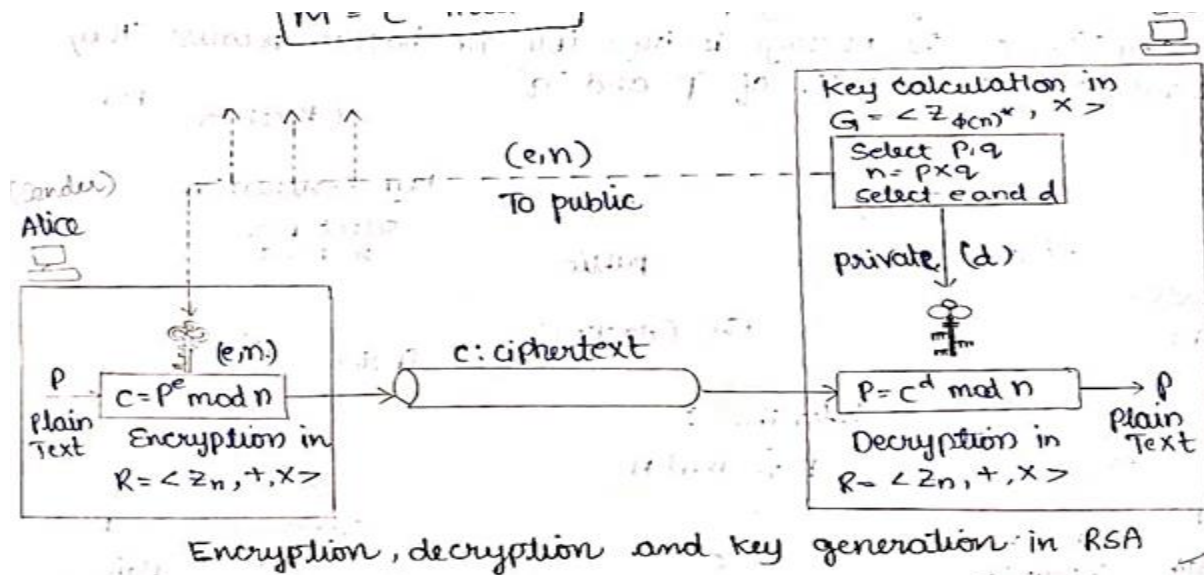 Key calculation in
G = < Z_ϕ(n)*, × >
Select p, q
n = p × q
Select e and d
(e, n)
To public
private (d)
(Sender)
Alice
(e, n)
P
Plain
Text
C = P^e mod n
Encryption in
R = < Z_n, +, × >
C: ciphertext
P = C^d mod n
Decryption in
R = < Z_n, +, × >
P
Plain
Text
Encryption, decryption and key generation in RSA